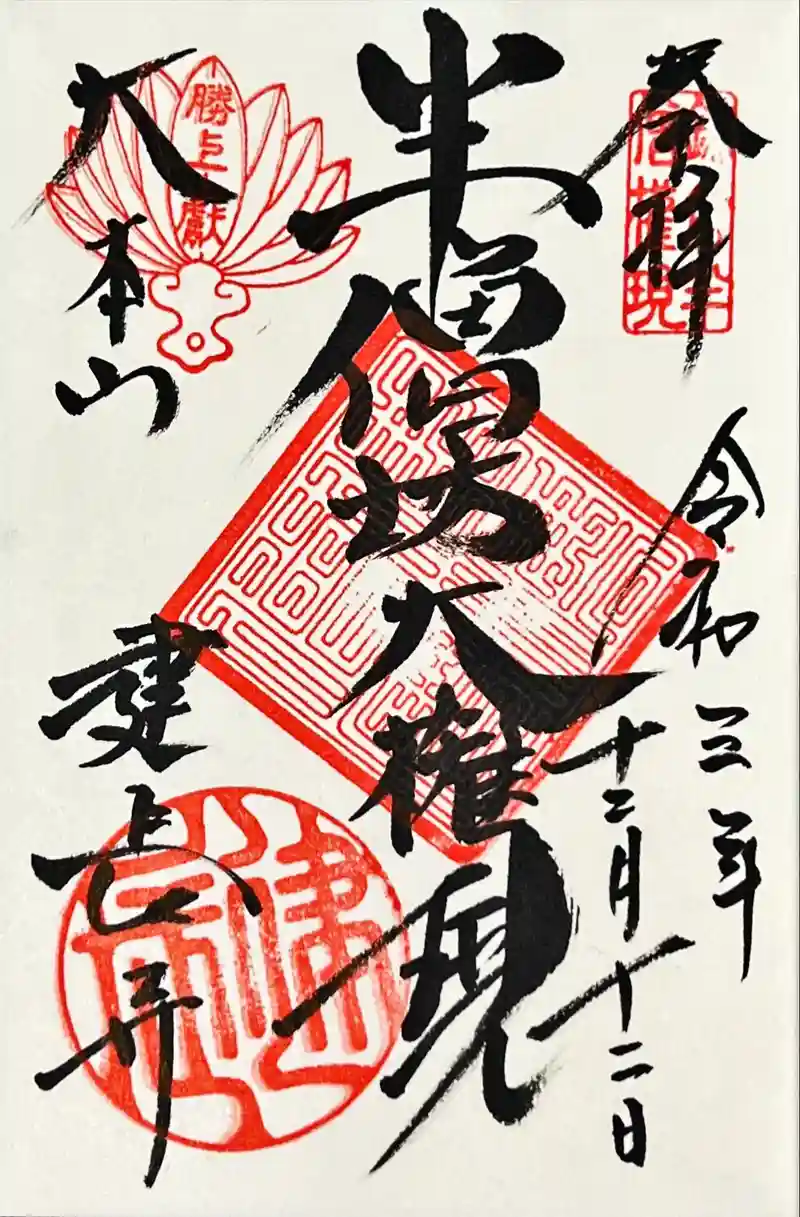 奉拝
令和三年
十二月十二日
半僧坊大権現
大本山
建長寺
勝上献